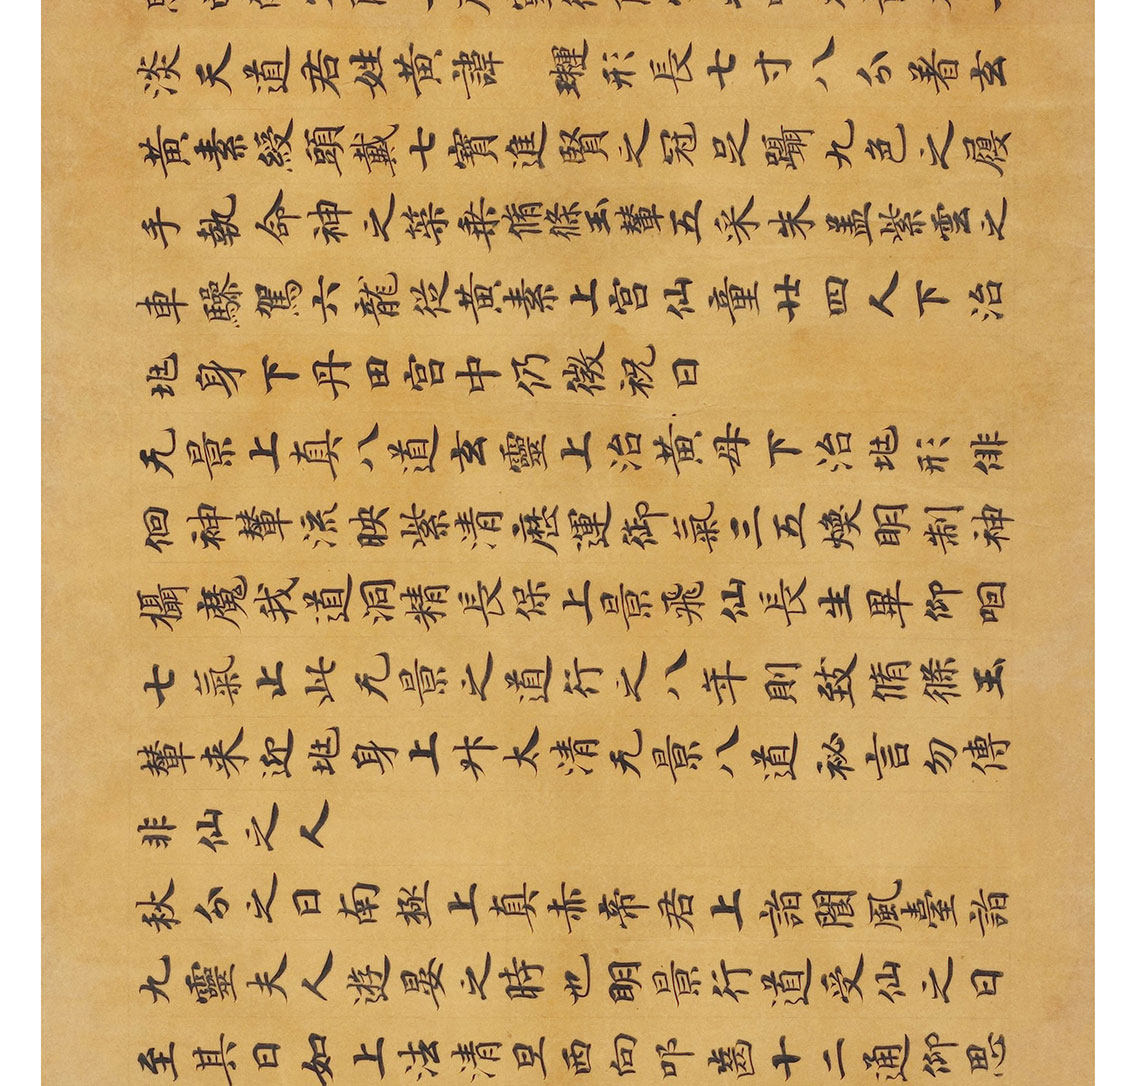 淡天道君姓黃諱 形長七寸八分著玄
黃素綬頭戴七寶進賢之冠足躡九色之履
手執命神之策乗脩條玉輦五采朱盖紫雲之
車驂駕六龍從黃素上宮仙童廿四人下治
兆身下丹田宮中仍微祝曰
无景上真八道玄靈上治黃母下治兆形俳
佪神輦流映紫清歷運御氣三五煥明制神
攝魔我道洞精長保上景飛仙長生畢仰咽
七氣止此无景之道行之八年則致脩條玉
輦来迎兆身上升太清无景八道祕言勿傳
非仙之人
秋分之日南極上真赤帝君上詣閬風臺詣
九靈夫人遊晏之時也明景行道受仙之日
至其日如上法清旦西向叩齒十二通仰思